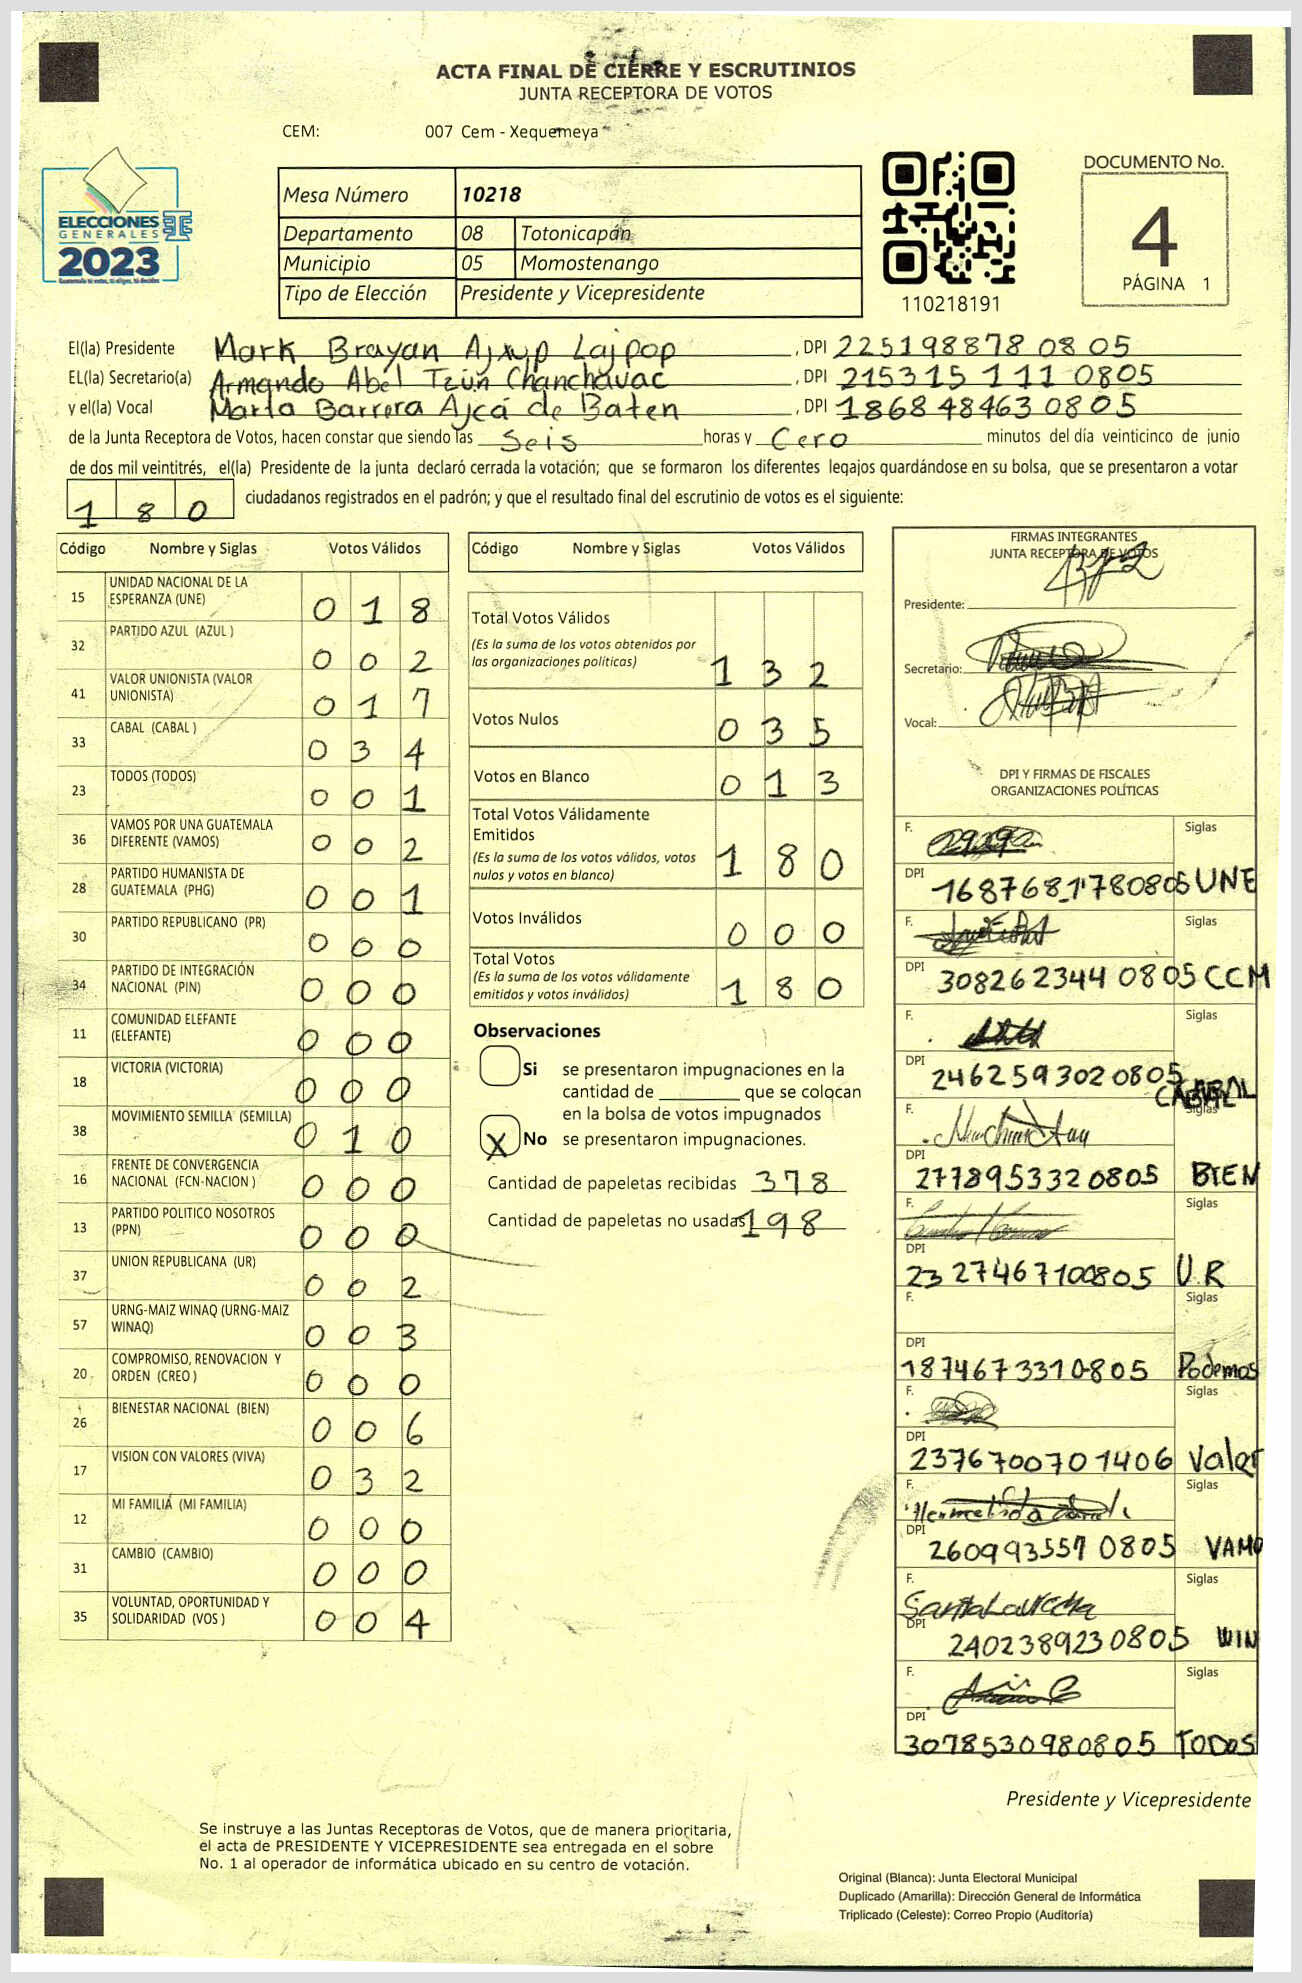 ACTA FINAL DE CIERRE Y ESCRUTINIOS
JUNTA RECEPTORA DE VOTOS
CEM: 007 Cem - Xequemeya
ELECCIONES
GENERALES
2023
Mesa Número 10218
Departamento 08 Totonicapán
Municipio 05 Momostenango
Tipo de Elección Presidente y Vicepresidente
110218191
DOCUMENTO No.
4
PÁGINA 1
El(la) Presidente Mark Brayan Ajxup Lajpop, DPI 225198878 0805
EL(la) Secretario(a) Armando Abel Tzún Chanchavac, DPI 215315 111 0805
y el(la) Vocal Marta Barrera Ajcá de Baten, DPI 186848463 0805
de la Junta Receptora de Votos, hacen constar que siendo las Seis horas y Cero minutos del día veinticinco de junio
de dos mil veintitrés, el(la) Presidente de la junta declaró cerrada la votación; que se formaron los diferentes legajos guardándose en su bolsa, que se presentaron a votar
180 ciudadanos registrados en el padrón; y que el resultado final del escrutinio de votos es el siguiente:
Código Nombre y Siglas Votos Válidos
15 UNIDAD NACIONAL DE LA ESPERANZA (UNE) 018
32 PARTIDO AZUL (AZUL ) 002
41 VALOR UNIONISTA (VALOR UNIONISTA) 017
33 CABAL (CABAL ) 034
23 TODOS (TODOS) 001
36 VAMOS POR UNA GUATEMALA DIFERENTE (VAMOS) 002
28 PARTIDO HUMANISTA DE GUATEMALA (PHG) 001
30 PARTIDO REPUBLICANO (PR) 000
34 PARTIDO DE INTEGRACIÓN NACIONAL (PIN) 000
11 COMUNIDAD ELEFANTE (ELEFANTE) 000
18 VICTORIA (VICTORIA) 000
38 MOVIMIENTO SEMILLA (SEMILLA) 010
16 FRENTE DE CONVERGENCIA NACIONAL (FCN-NACION ) 000
13 PARTIDO POLITICO NOSOTROS (PPN) 000
37 UNION REPUBLICANA (UR) 002
57 URNG-MAIZ WINAQ (URNG-MAIZ WINAQ) 003
20 COMPROMISO, RENOVACION Y ORDEN (CREO ) 000
26 BIENESTAR NACIONAL (BIEN) 006
17 VISION CON VALORES (VIVA) 032
12 MI FAMILIA (MI FAMILIA) 000
31 CAMBIO (CAMBIO) 000
35 VOLUNTAD, OPORTUNIDAD Y SOLIDARIDAD (VOS ) 004
Código Nombre y Siglas Votos Válidos
Total Votos Válidos 132
(Es la suma de los votos obtenidos por las organizaciones políticas)
Votos Nulos 035
Votos en Blanco 013
Total Votos Válidamente Emitidos 180
(Es la suma de los votos válidos, votos nulos y votos en blanco)
Votos Inválidos 000
Total Votos 180
(Es la suma de los votos válidamente emitidos y votos inválidos)
Observaciones
Si se presentaron impugnaciones en la
cantidad de ________ que se colocan
en la bolsa de votos impugnados
X No se presentaron impugnaciones.
Cantidad de papeletas recibidas 378
Cantidad de papeletas no usadas 198
FIRMAS INTEGRANTES
JUNTA RECEPTORA DE VOTOS
Presidente:
Secretario:
Vocal:
DPI Y FIRMAS DE FISCALES
ORGANIZACIONES POLÍTICAS
F. Siglas
DPI 1687681780805 UNE
F. Siglas
DPI 308262344 0805 CCM
F. Siglas
DPI 2462593020805 CABAL
F. Siglas
DPI 2778953320805 BIEN
F. Siglas
DPI 2327467100805 U.R
F. Siglas
DPI 1874673310805 Podemos
F. Siglas
DPI 2376700701406 Valor
F. Siglas
DPI 260993557 0805 VAMO
F. Siglas
DPI 2402389230805 WIN
F. Siglas
DPI 3078530980805 TODOS
Presidente y Vicepresidente
Se instruye a las Juntas Receptoras de Votos, que de manera prioritaria,
el acta de PRESIDENTE Y VICEPRESIDENTE sea entregada en el sobre
No. 1 al operador de informática ubicado en su centro de votación.
Original (Blanca): Junta Electoral Municipal
Duplicado (Amarilla): Dirección General de Informática
Triplicado (Celeste): Correo Propio (Auditoría)